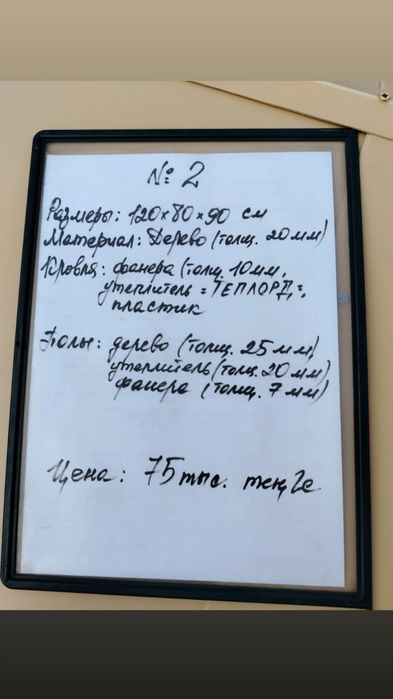 № 2
Размеры: 120×80×90 см
Материал: Дерево (толщ. 20 мм)
Кровля: фанера (толщ. 10 мм,
утеплитель = ТЕПЛОРД =,
пластик
Полы: дерево (толщ. 25 мм)
утеплитель (толщ. 20 мм)
фанера (толщ. 7 мм)
Цена: 75 тыс. тенге